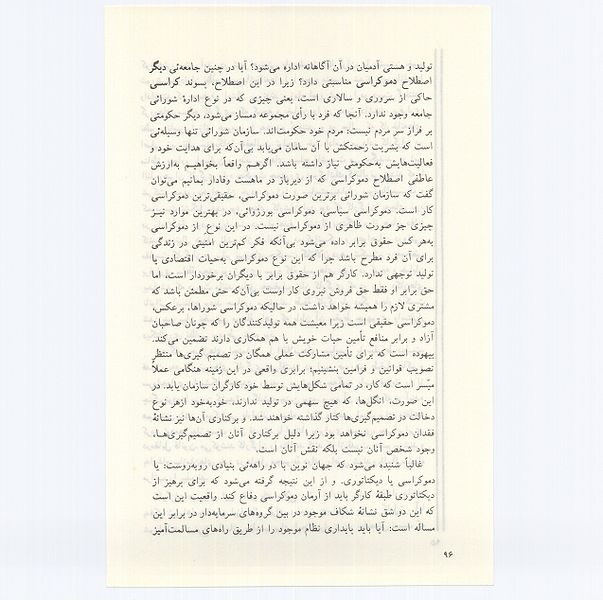 تولید و هستی آدمیان در آن آگاهانه اداره می‌شود؟ آیا در چنین جامعه‌ئی دیگر
اصطلاح دموکراسی مناسبتی دارد؟ زیرا در این اصطلاح، پسوند کراسی
حاکی از سروری و سالاری است، یعنی چیزی که در نوع ادارهٔ شورائی
جامعه وجود ندارد. آنجا که فرد با رأی مجموعه دمساز می‌شود، دیگر حکومتی
بر فراز سر مردم نیست: مردم خود حکومت‌اند. سازمان شورائی تنها وسیله‌ئی
است که بشریت زحمتکش با آن سامان می‌یابد بی‌آن‌که برای هدایت خود و
فعالیت‌هایش به‌حکومتی نیاز داشته باشد. اگرهم واقعاً بخواهیم به‌ارزش
عاطفی اصطلاح دموکراسی که از دیرباز در ماهست وفادار بمانیم می‌توان
گفت که سازمان شورائی برترین صورت دموکراسی، حقیقی‌ترین دموکراسی
کار است. دموکراسی سیاسی، دموکراسی بورژوائی، در بهترین موارد نیز
چیزی جز صورت ظاهری از دموکراسی نیست. در این نوع از دموکراسی
به‌هر کس حقوق برابر داده می‌شود بی‌آنکه فکر کم‌ترین امنیتی در زندگی
برای آن فرد مطرح باشد چرا که این نوع دموکراسی به‌حیات اقتصادی یا
تولید توجهی ندارد. کارگر هم از حقوق برابر با دیگران برخوردار است، اما
حق برابر او فقط حق فروش نیروی کار اوست بی‌آن‌که حتی مطمئن باشد که
مشتری لازم را همیشه خواهد داشت. در حالیکه دموکراسی شوراها، برعکس،
دموکراسی حقیقی است زیرا معیشت همه تولیدکنندگان را که چونان صاحبان
آزاد و برابر منافع تأمین حیات خویش با هم همکاری دارند تضمین می‌کند.
بیهوده است که برای تأمین مشارکت عملی همگان در تصمیم گیری‌ها منتظر
تصویب قوانین و فرامین بنشینیم؛ برابری واقعی در این زمینه هنگامی عملاً
میّسر است که کار، در تمامی شکل‌هایش توسط خود کارگران سازمان یابد. در
این صورت، انگل‌ها، که هیچ سهمی در تولید ندارند، خودبه‌خود ازهر نوع
دخالت در تصمیم‌گیری‌ها کنار گذاشته خواهند شد، و برکناری آن‌ها نیز نشانهٔ
فقدان دموکراسی نخواهد بود زیرا دلیل برکناری آنان از تصمیم‌گیری‌ها،
وجود شخص آنان نیست بلکه نقش آنان است.
غالباً شنیده می‌شود که جهان نوین با دو راهه‌ئی بنیادی روبه‌روست: یا
دموکراسی یا دیکتاتوری. و از این نتیجه گرفته می‌شود که برای پرهیز از
دیکتاتوری طبقهٔ کارگر باید از آرمان دموکراسی دفاع کند. واقعیت این است
که این دو شق نشانهٔ شکاف موجود در بین گروه‌های سرمایه‌دار در برابر این
مساله است: آیا باید پایداری نظام موجود را از طریق راه‌های مسالمت‌آمیز
۹۶